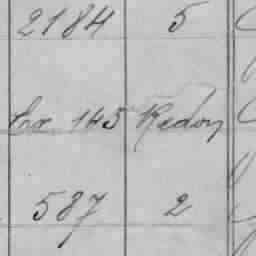 2184 5
145 Redon
587 2